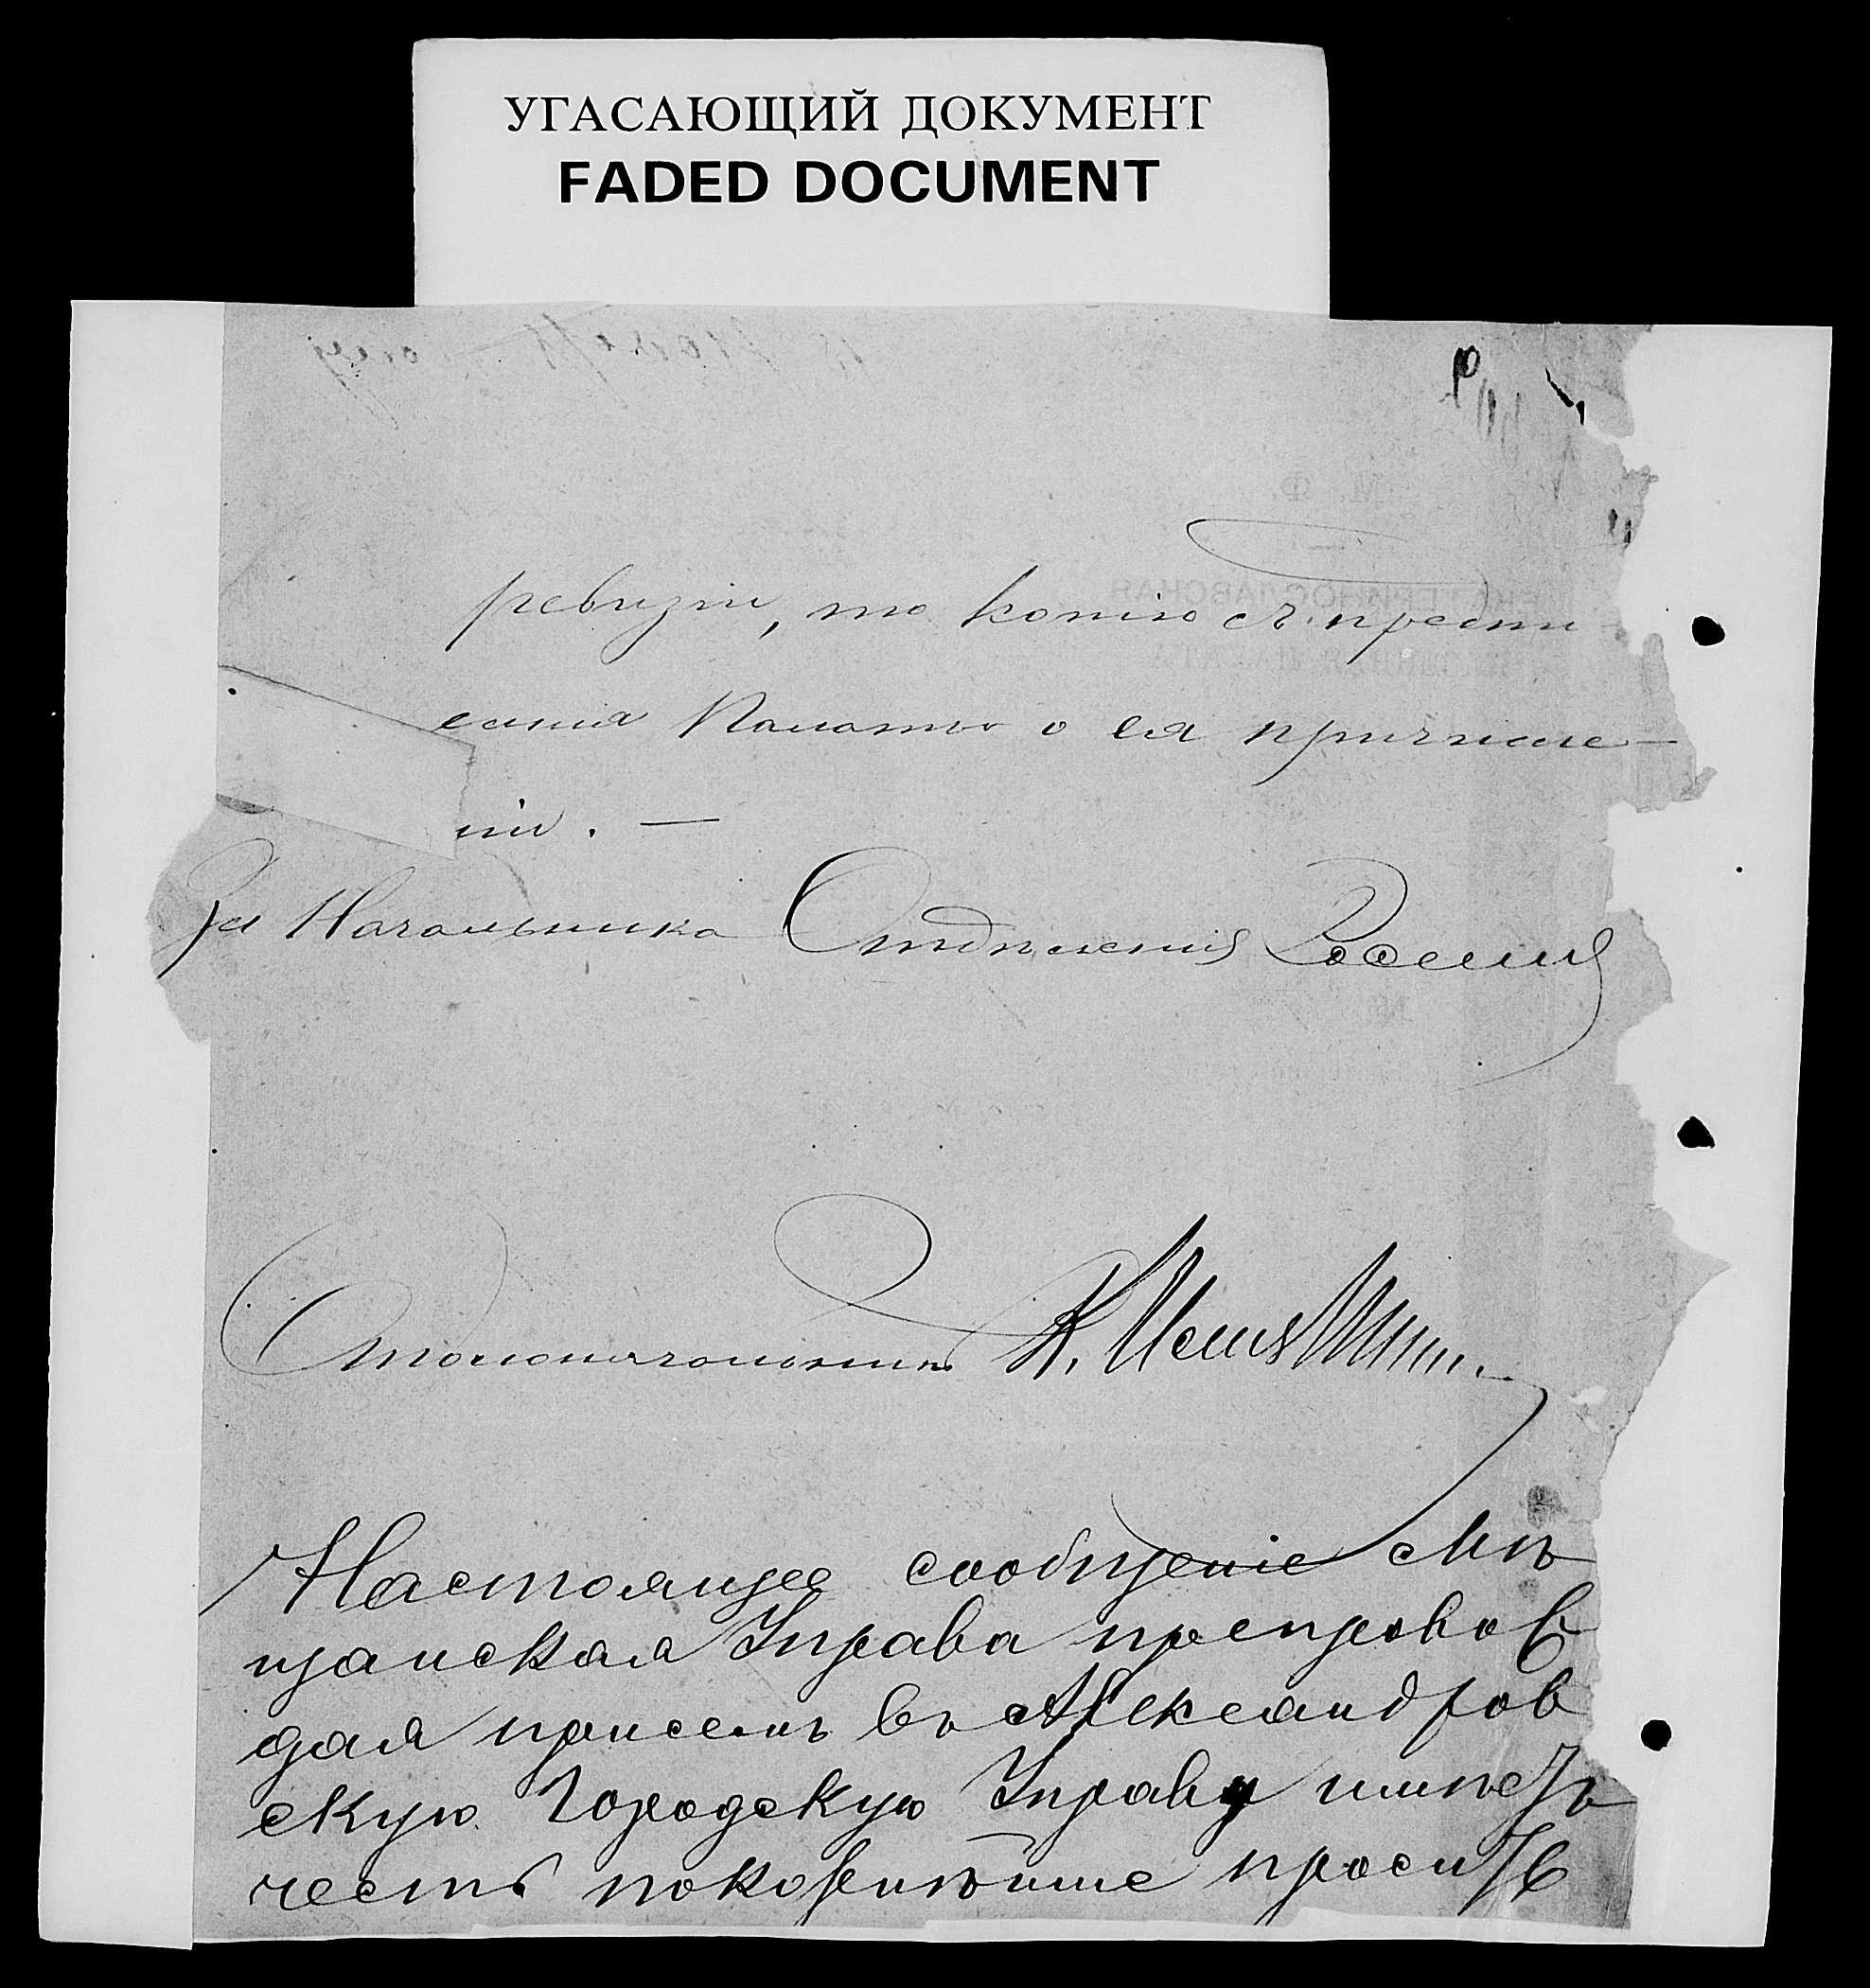 УГАСАЮЩИЙ ДОКУМЕНТ
FADED DOCUMENT
ревизіи, то копію съ предпи-
санія Палаты о ея причисле-
ніи. —
За Начальника Отдѣленія
Столоначальникъ К.
Настоящее сообщеніе Мѣ
щанская Управа препровож
дая при семъ въ Александров
скую Городскую Управу имѣетъ
честь покорнѣйше просить